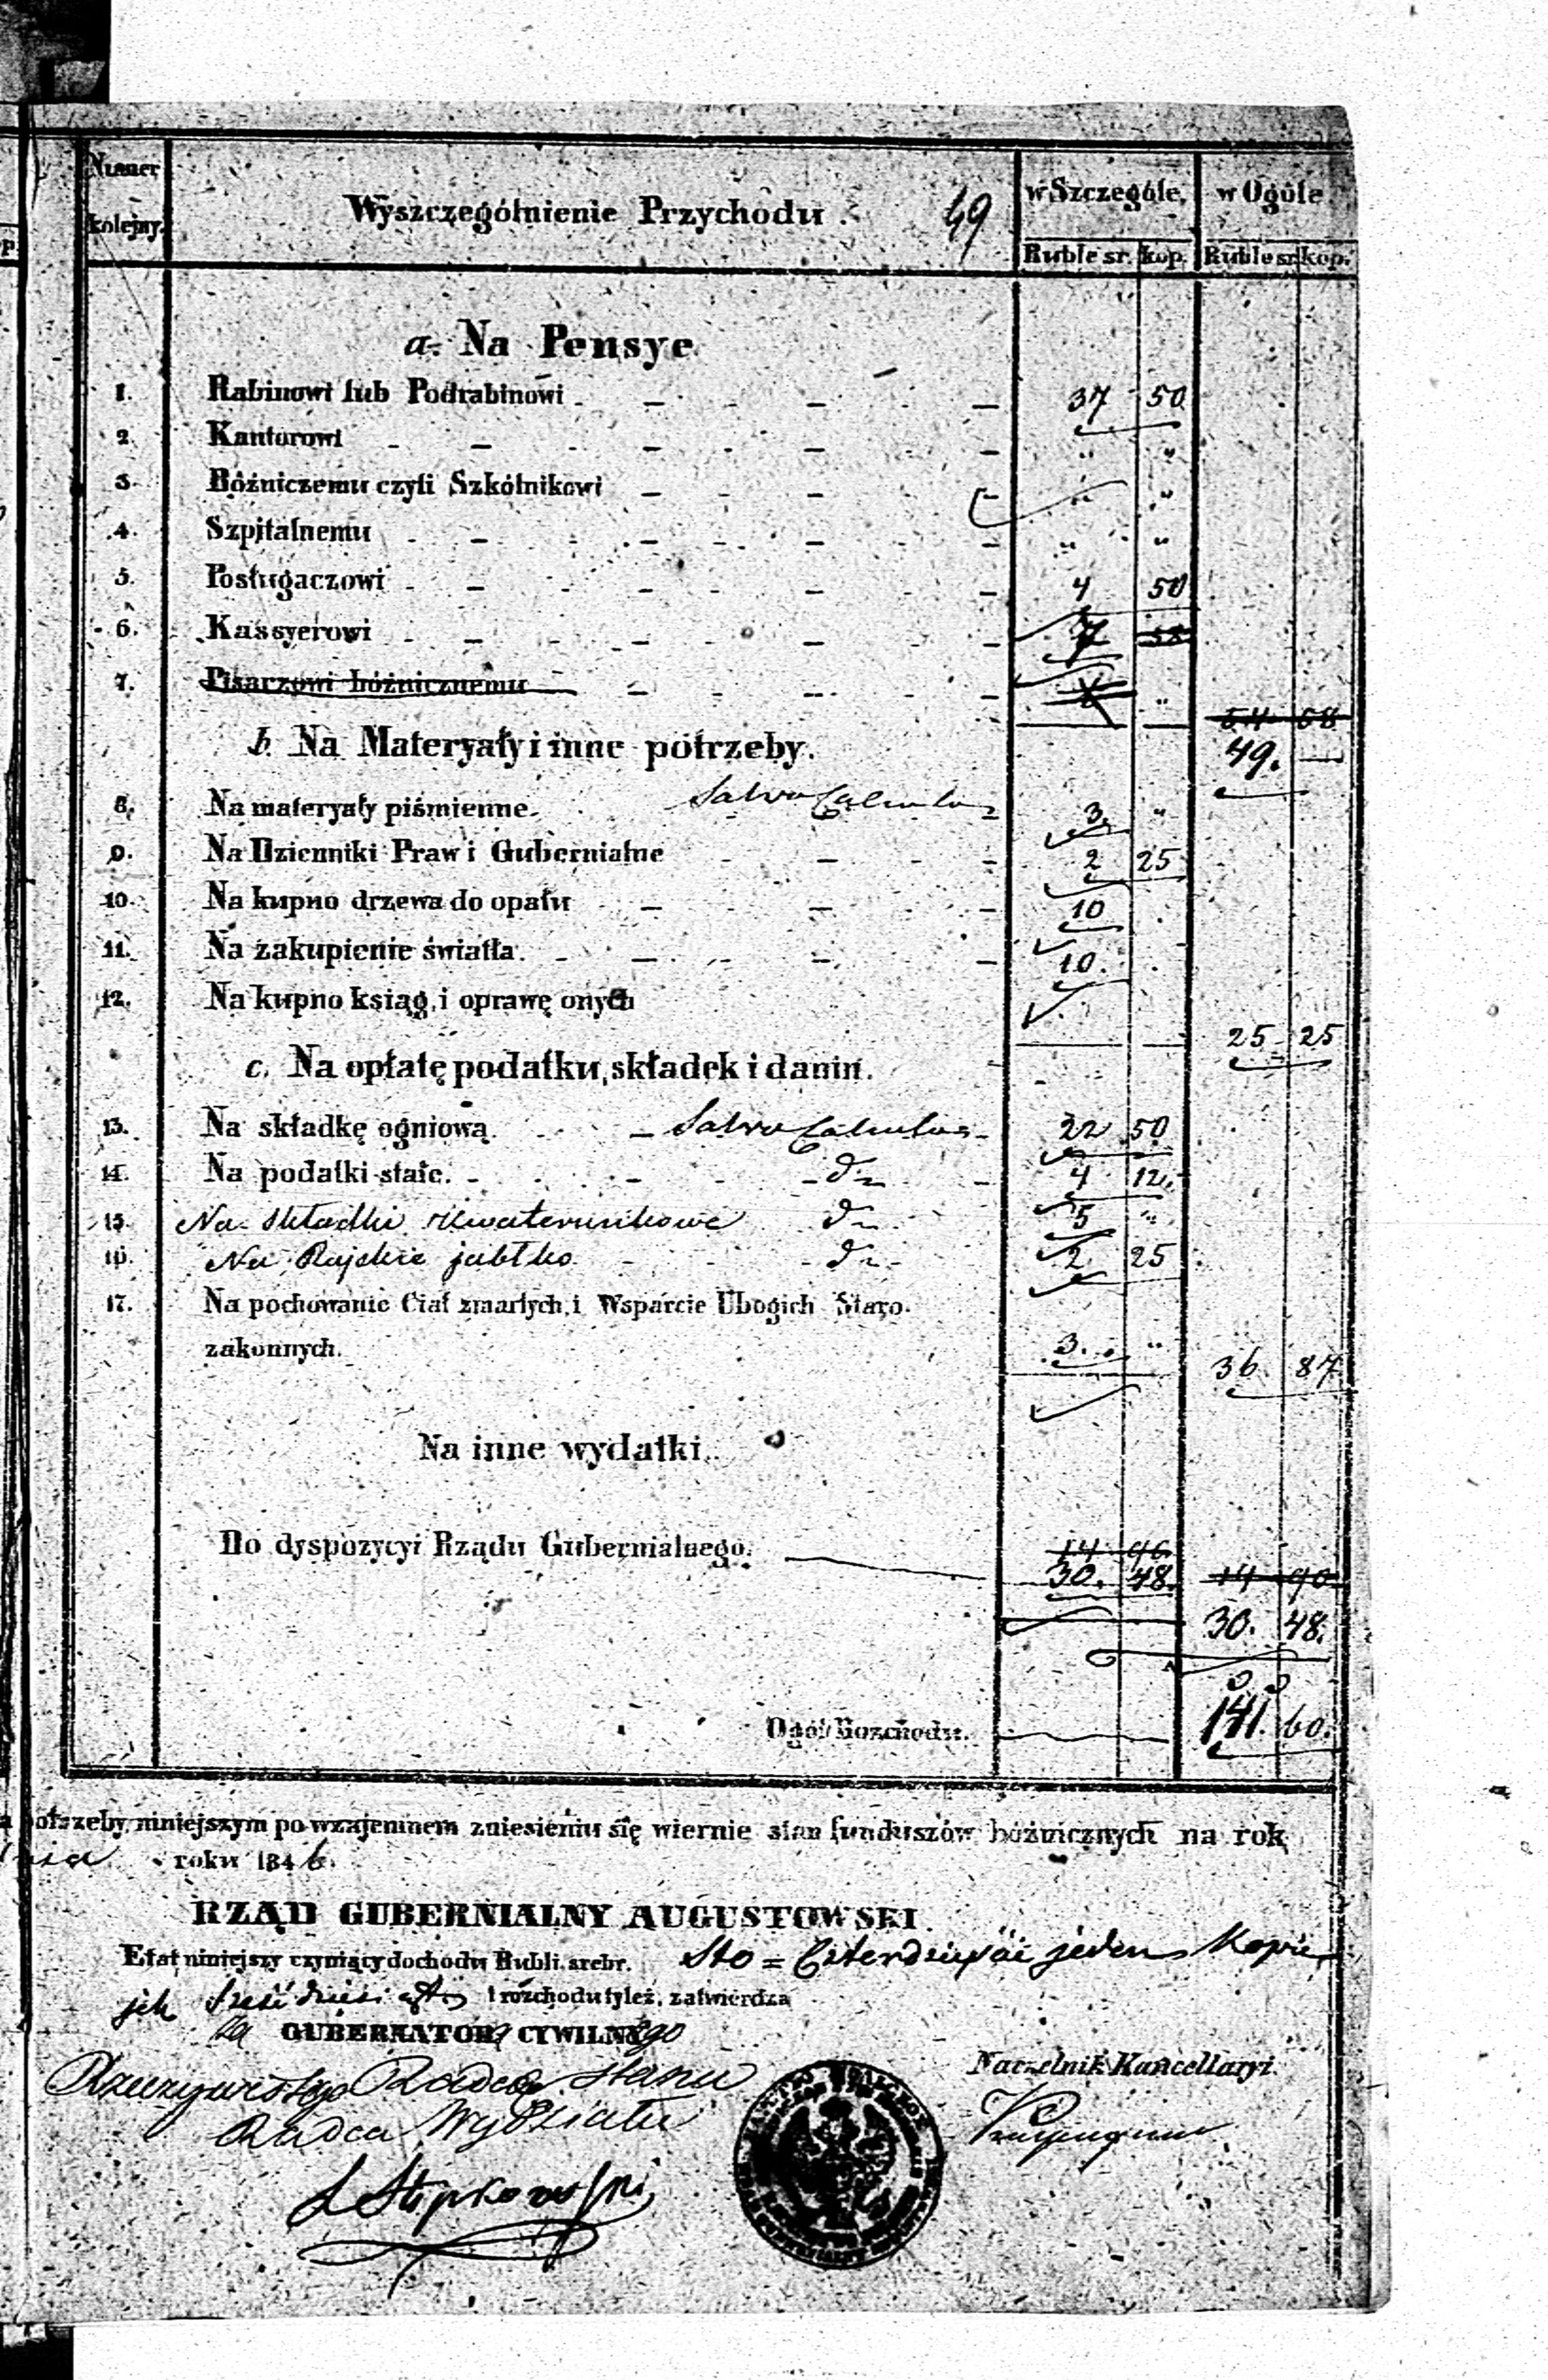 Numer kolejny.
Wyszczególnienie Przychodu
49
w Szczególe. w Ogóle
Ruble sr. kop. Ruble sr. kop.
a. Na Pensye
1. Rabinowi lub Podrabinowi 37 50
2. Kantorowi " "
3. Bóźniczemu czyli Szkólnikowi " "
4. Szpitalnemu " "
5. Posługaczowi 4 50
6. Kassyerowi 7
7. Pisarzowi bóżnicznemu "
54 58
b. Na Materyały i inne potrzeby. 49. —
8. Na materyały piśmienne. Salvo Calculo 3. "
9. Na Dzienniki Praw i Gubernialne 2 25
10. Na kupno drzewa do opału 10
11. Na zakupienie światła. 10.
12. Na kupno ksiąg, i oprawę onych
25 25
c. Na opłatę podatku, składek i danin.
13. Na składkę ogniową. Salvo Calculo 22 50
14. Na podatki stałe. do 4 12.
15. Na Składki Kwaterunkowe do 5 "
16. Na Rajskie jabłko do 2. 25
17. Na pochowanie Ciał zmarłych, i Wsparcie Ubogich Staro-
zakonnych. 3. "
36. 87
Na inne wydatki.
14 90
Do dyspozycyi Rządu Gubernialnego. 30. 48. 14 90
30. 48.
Ogół Rozchodu. 141. 60.
potrzeby, niniejszym po wzajemnem zniesieniu się wiernie stan funduszów bóżnicznych na rok
roku 1846.
RZĄD GUBERNIALNY AUGUSTOWSKI
Etat niniejszy czyniący dochodu Rubli. srebr. Sto = Czterdzieści jeden Kopie
jek Sześćdziesiąt i rozchodu tyleż, zatwierdza
za GUBERNATORA CYWILNEgo
Rzeczywistego Radcę Stanu
Radca Wydziału
Naczelnik Kancellaryi.